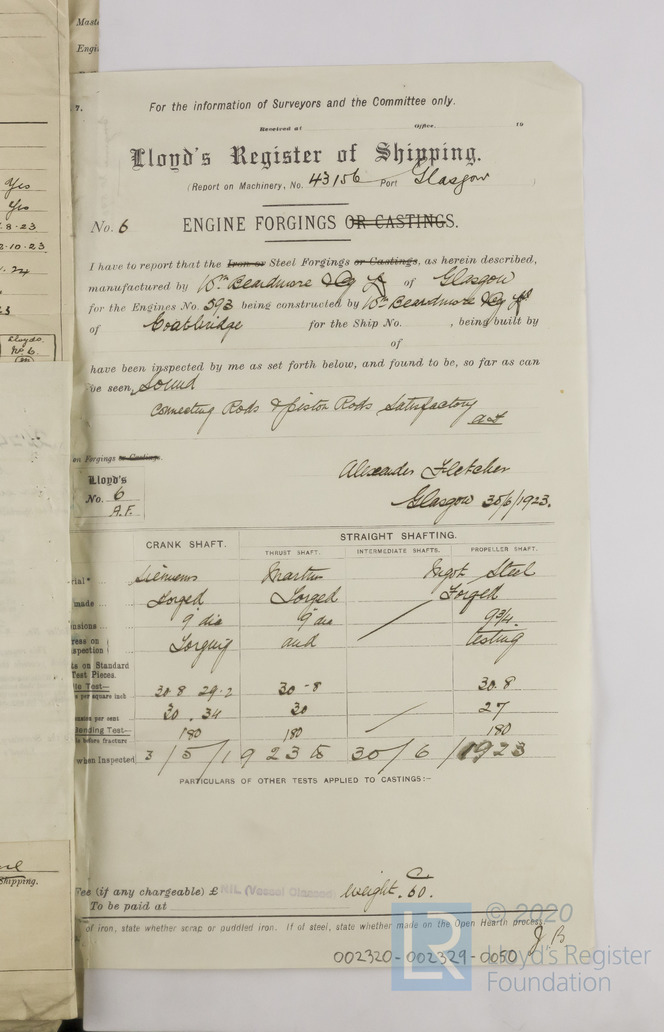 Mast
Engi
Yes
Yes
.8.23
2.10.23
Lloyds
No 6.
7.
For the information of Surveyors and the Committee only.
Received at Office. 19
Lloyd's Register of Shipping.
(Report on Machinery, No. 43156 Port Glasgow )
No. 6 ENGINE FORGINGS OR CASTINGS.
I have to report that the Iron or Steel Forgings or Castings, as herein described,
manufactured by Wm Beardmore & Co Ld of Glasgow
for the Engines No. 593 being constructed by Wm Beardmore & Co Ld
of Coatbridge for the Ship No. , being built by
of
have been inspected by me as set forth below, and found to be, so far as can
be seen, Sound
Connecting Rods & Piston Rods Satisfactory
on Forgings or Castings.
Lloyd's
No. 6
A.F.
Alexander Fletcher
Glasgow 30/6/1923.
CRANK SHAFT. STRAIGHT SHAFTING.
THRUST SHAFT. INTERMEDIATE SHAFTS. PROPELLER SHAFT.
rial* Siemens Martin Ingot Steel
made Forged Forged Forged
nsions 9 dia 9 dia 9 3/4.
ress on
spection Forging and testing
ts on Standard
Test Pieces.
le Test—
s per square inch 30.8 29.2 30-8 30.8
ension per cent 30.34 30 27
Bending Test—
le before fracture 180 180 180
when Inspected 3/5/1923 to 30/6/1923
PARTICULARS OF OTHER TESTS APPLIED TO CASTINGS:-
Fee (if any chargeable) £ NIL (Vessel Classed) Weight. 60.
To be paid at
Shipping.
of iron, state whether scrap or puddled iron. If of steel, state whether made on the Open Hearth process
J B
LR © 2020
Lloyd's Register
Foundation
002320-002329-0050